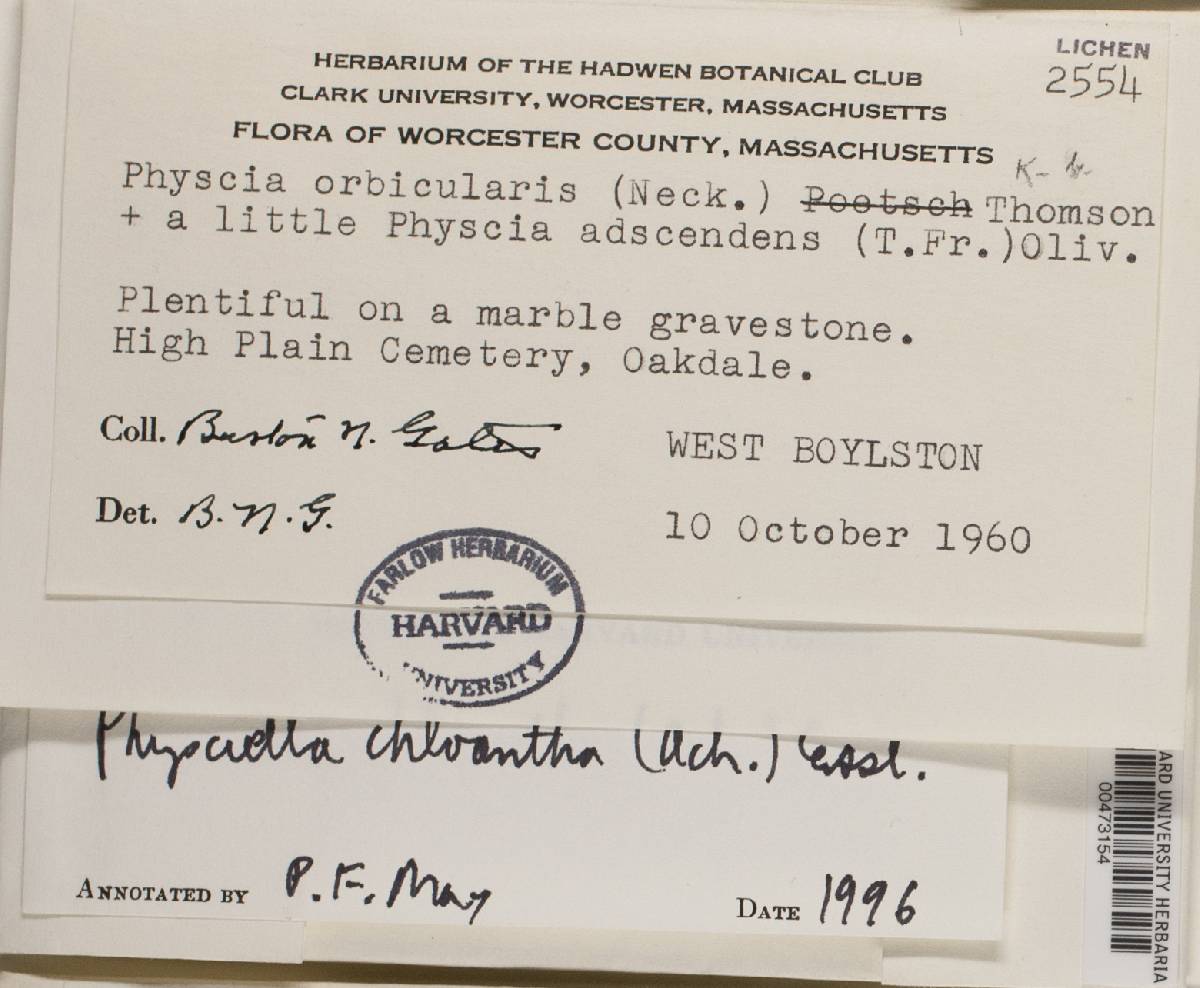 LICHEN
2554
HERBARIUM OF THE HADWEN BOTANICAL CLUB
CLARK UNIVERSITY, WORCESTER, MASSACHUSETTS
FLORA OF WORCESTER COUNTY, MASSACHUSETTS
K-
Physcia orbicularis (Neck.) Poetsch Thomson
+ a little Physcia adscendens (T.Fr.)Oliv.
Plentiful on a marble gravestone.
High Plain Cemetery, Oakdale.
Coll. Burton N. Gates
WEST BOYLSTON
Det. B. N. G.
10 October 1960
FARLOW HERBARIUM
HARVARD
UNIVERSITY
Physciella chloantha (Ach.) Essl.
ANNOTATED BY P. F. May
DATE 1996
ARD UNIVERSITY HERBARIA
00473154